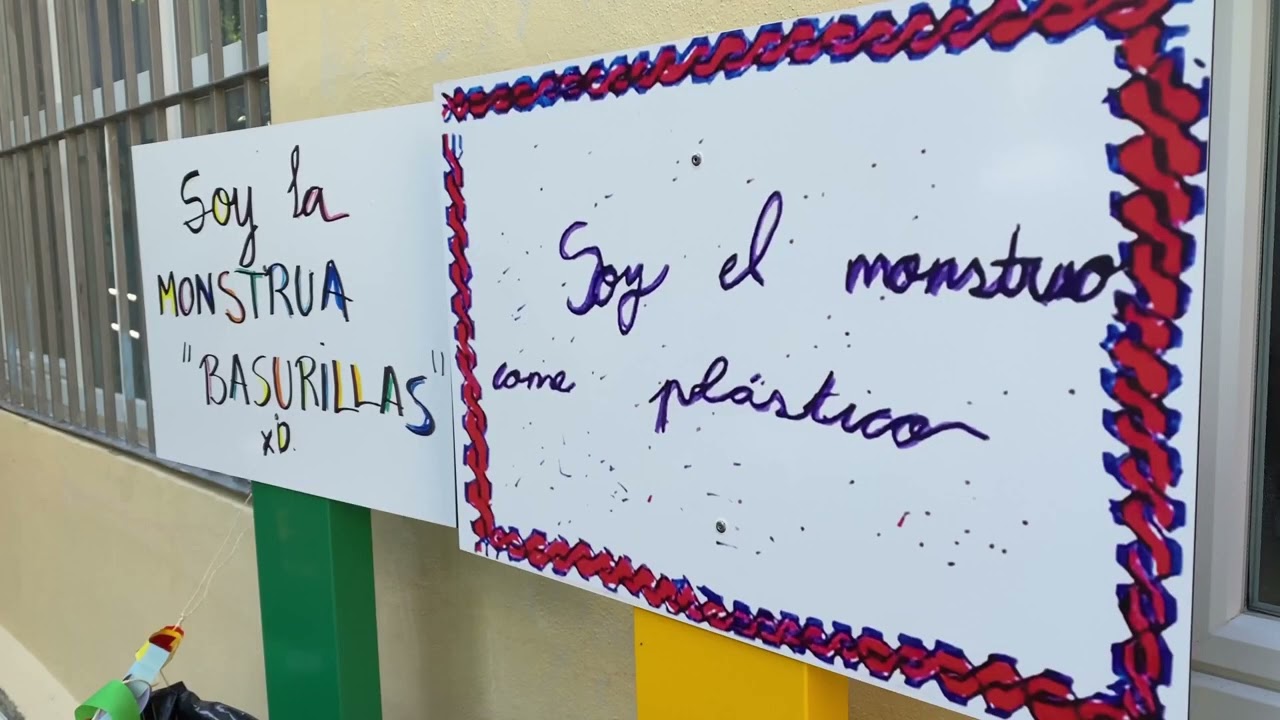 Soy la
MONSTRUA
"BASURILLAS"
xD.
Soy el monstruo
come plástico